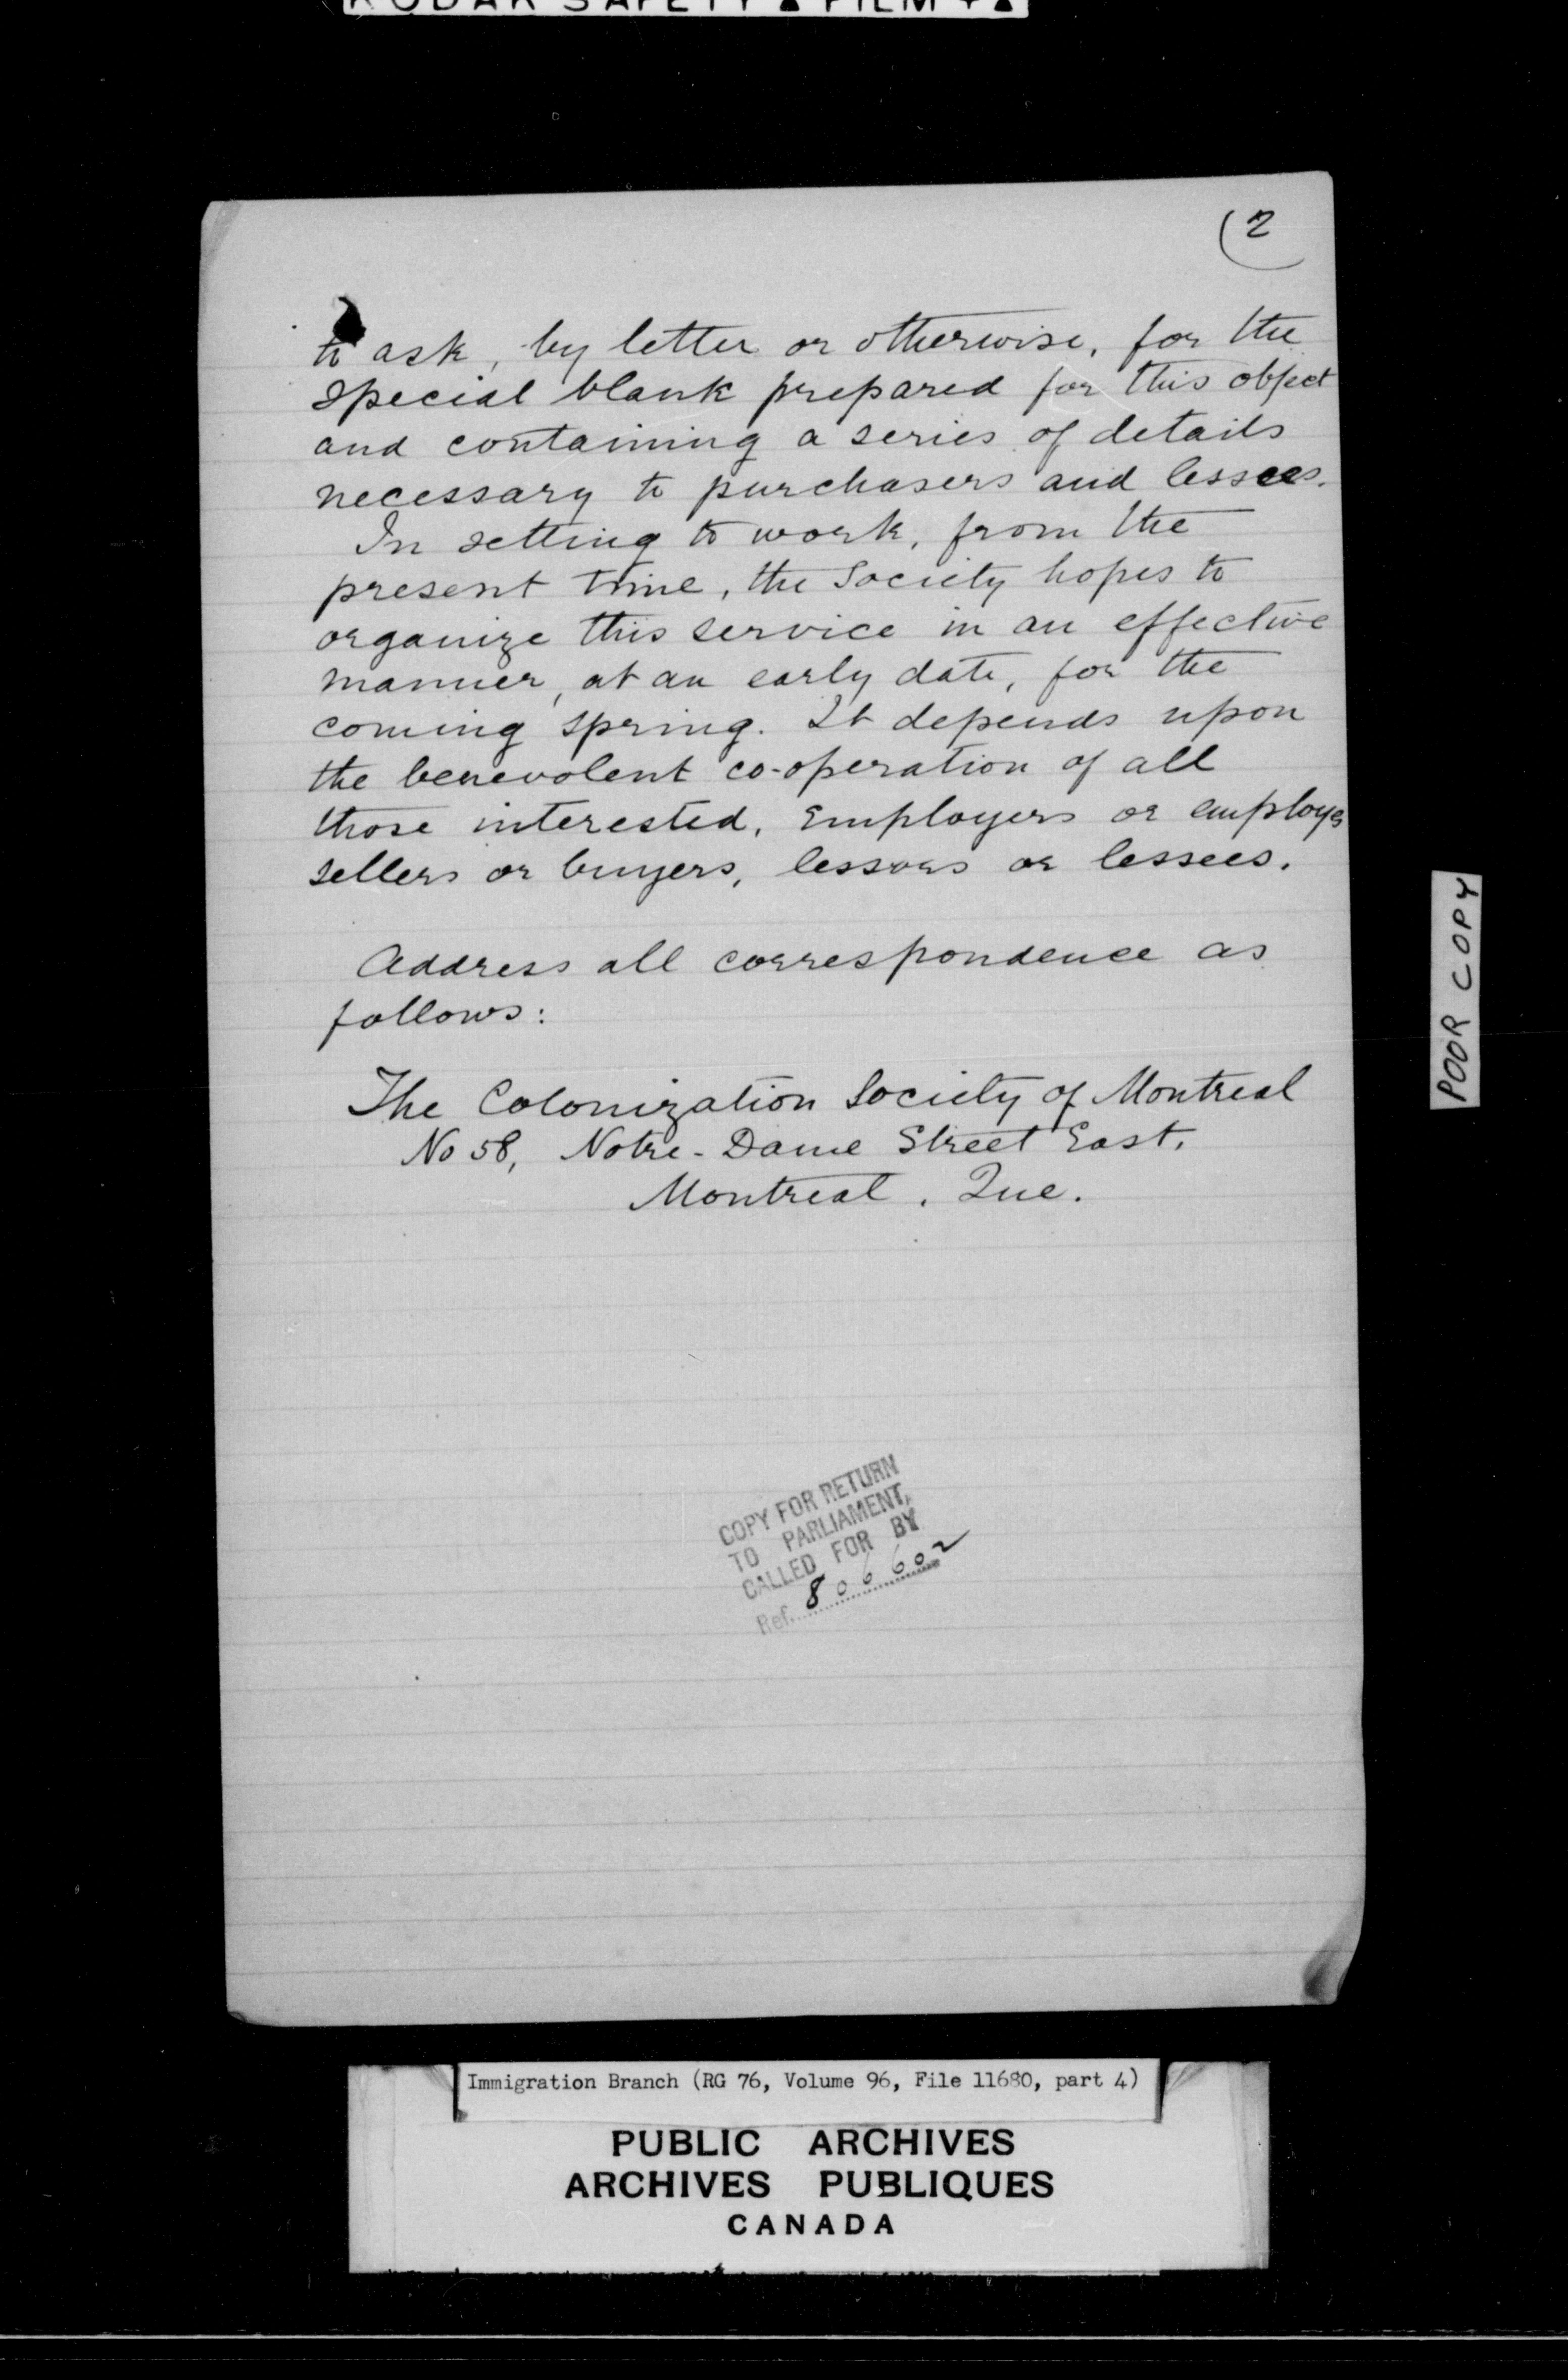 KODAK SAFETY ▲ FILM + ▲
(2
to ask, by letter or otherwise, for the
special blank prepared for this object
and containing a series of details
necessary to purchasers and lessees.
In setting to work, from the
present time, the Society hopes to
organize this service in an effective
manner, at an early date, for the
coming spring. It depends upon
the benevolent co-operation of all
those interested, Employers or employes
sellers or buyers, lessors or lessees.
Address all correspondence as
follows:
The Colonization Society of Montreal
No 58, Notre-Dame Street East.
Montreal, Que.
COPY FOR RETURN
TO PARLIAMENT,
CALLED FOR BY
Ref. 806602
POOR COPY
Immigration Branch (RG 76, Volume 96, File 11680, part 4)
PUBLIC ARCHIVES
ARCHIVES PUBLIQUES
CANADA